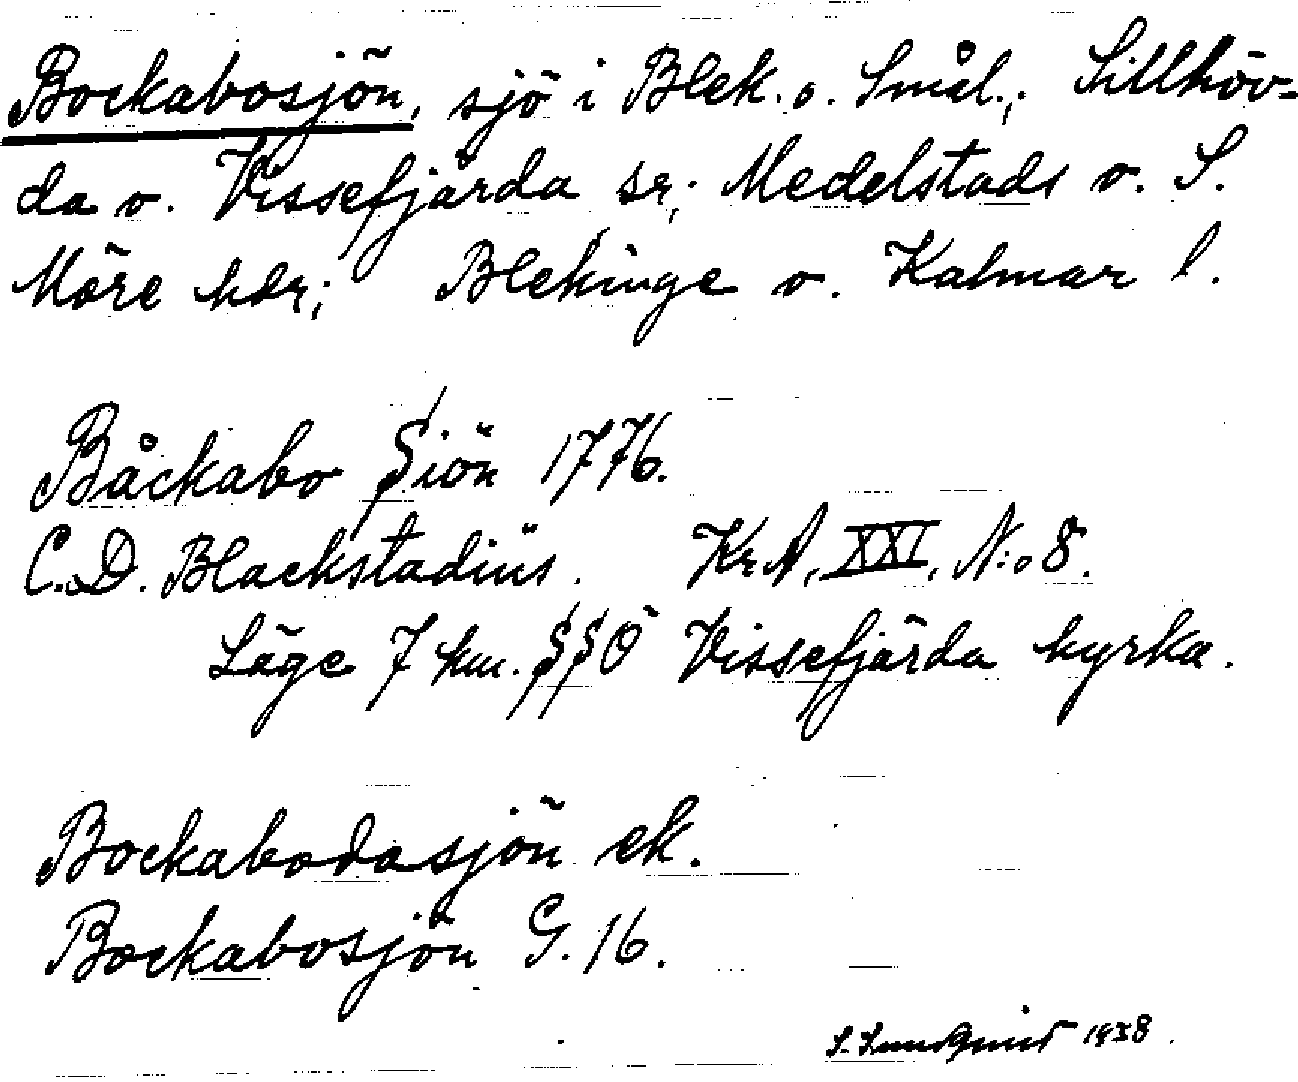 Bockabosjön, sjö i Blek. o. Smål.; Sillhöv-
da o. Vissefjärda sr; Medelstads o. S.
Möre hdr; Blekinge o. Kalmar l.
Båckabo Siön 1776.
C.D. Blackstadius. Kr.A, XXI, N:o 8.
Läge 7 km. SSÖ Vissefjärda kyrka.
Bockabodasjön ek.
Bockabosjön G. 16.
S. Sundqvist 1938.